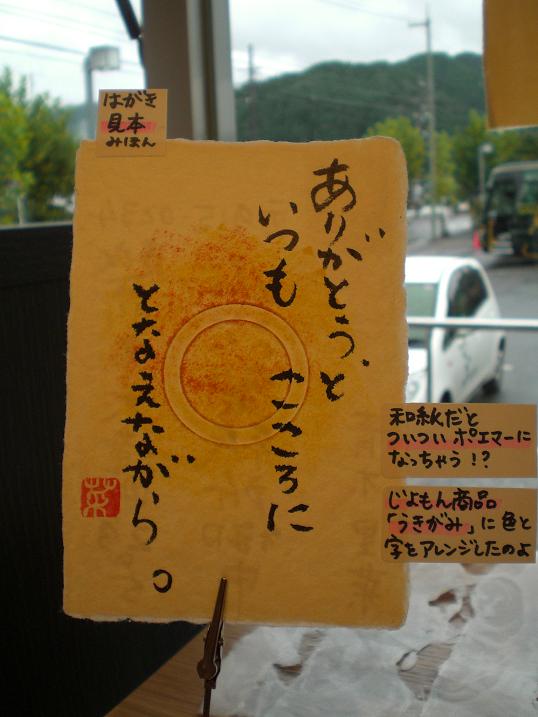 はがき
見本
みほん
ありがとう、と
いつも こころに
となえながら。
菜
和紙だと
ついつい ポエマーに
なっちゃう!?
じょもん商品
「うきがみ」に 色と
字をアレンジしたのよ